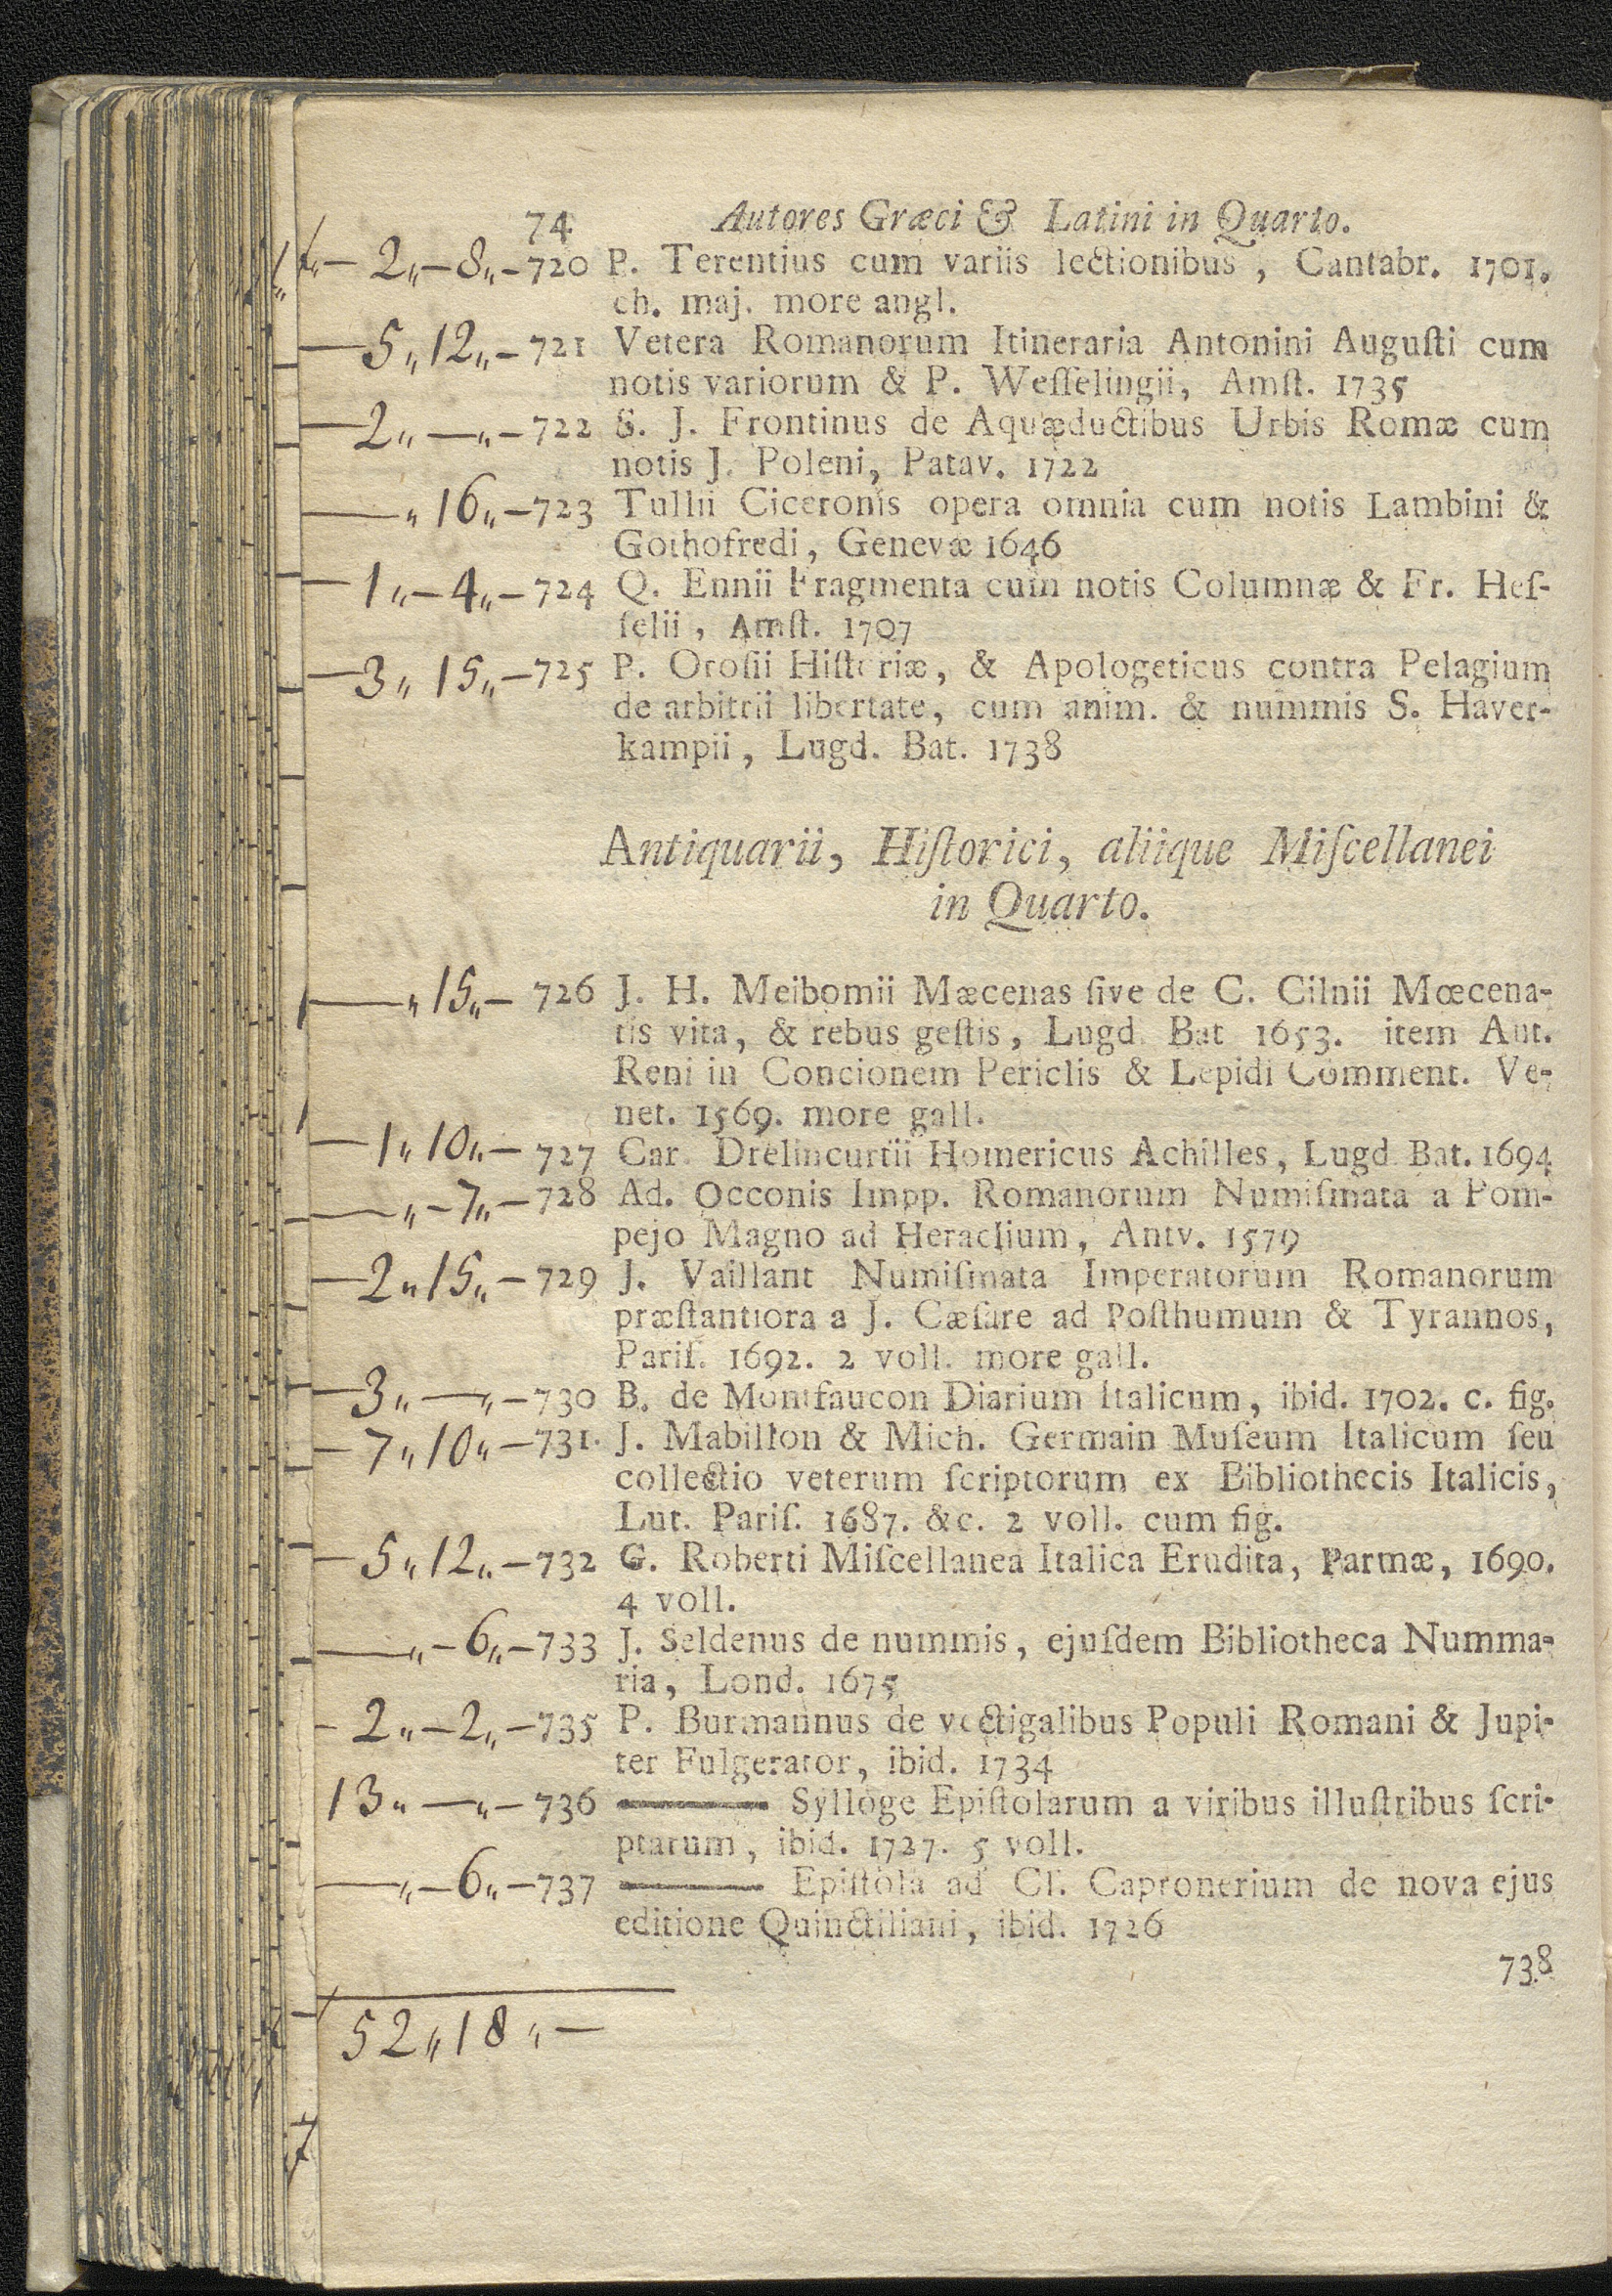 74 Autores Græci & Latini in Quarto.
— 2„—8„— 720 P. Terentius cum variis lectionibus, Cantabr. 1701.
ch. maj. more angl.
—5„12„— 721 Vetera Romanorum Itineraria Antonini Auguſti cum
notis variorum & P. Weſſelingii, Amſt. 1735
—2„—„— 722 S. J. Frontinus de Aquæductibus Urbis Romæ cum
notis J. Poleni, Patav. 1722
—„16„—723 Tullii Ciceronis opera omnia cum notis Lambini &
Gothofredi, Genevæ 1646
—1„—4„—724 Q. Ennii Fragmenta cum notis Columnæ & Fr. Heſ-
ſelii, Amſt. 1707
—3„15„—725 P. Oroſii Hiſtoriæ, & Apologeticus contra Pelagium
de arbitrii libertate, cum anim. & nummis S. Haver-
kampii, Lugd. Bat. 1738
Antiquarii, Hiſtorici, aliique Miſcellanei
in Quarto.
—„15„— 726 J. H. Meibomii Mæcenas ſive de C. Cilnii Mœcena-
tis vita, & rebus geſtis, Lugd. Bat 1653. item Aut.
Reni in Concionem Periclis & Lepidi Comment. Ve-
net. 1569. more gall.
—1„10„— 727 Car. Drelincurtii Homericus Achilles, Lugd. Bat. 1694
—„—7„—728 Ad. Occonis Impp. Romanorum Numiſmata a Pom-
pejo Magno ad Heraclium, Antv. 1579
—2„15„—729 J. Vaillant Numiſmata Imperatorum Romanorum
præſtantiora a J. Cæſare ad Poſthumum & Tyrannos,
Pariſ. 1692. 2 voll. more gall.
—3„—„—730 B. de Montfaucon Diarium Italicum, ibid. 1702. c. fig.
—7„10„—731. J. Mabillon & Mich. Germain Muſeum Italicum ſeu
collectio veterum ſcriptorum ex Bibliothecis Italicis,
Lut. Pariſ. 1687. &c. 2 voll. cum fig.
—5„12„—732 G. Roberti Miſcellanea Italica Erudita, Parmæ, 1690.
4 voll.
—„—6„—733 J. Seldenus de nummis, ejuſdem Bibliotheca Numma-
ria, Lond. 1675
—2„—2„—735 P. Burmannus de vectigalibus Populi Romani & Jupi-
ter Fulgerator, ibid. 1734
13„—„—736 ——— Sylloge Epiſtolarum a viribus illuſtribus ſcri-
ptarum, ibid. 1727. 5 voll.
—„—6„—737 ——— Epiſtola ad Cl. Capronerium de nova ejus
editione Quinctiliani, ibid. 1726
738
52„18„—